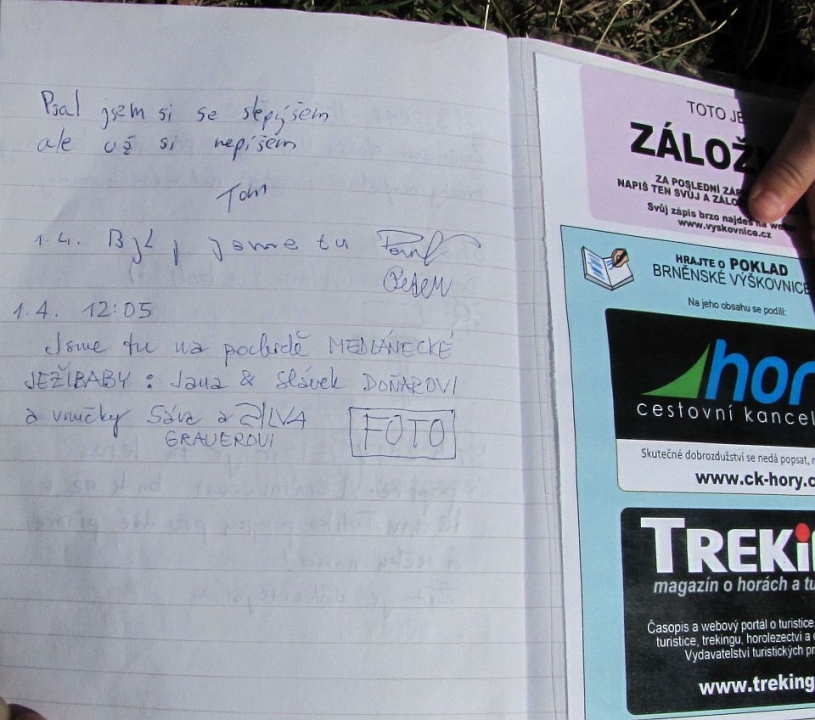 Psal jsem si se slepýšem
ale už si nepíšem
Tom
1.4. Byl, jsme tu
1.4. 12:05
Jsme tu na pochodě MEDLÁNECKÉ
JEŽIBABY: Jana & Slávek DOŇAROVI
a vnučky Sáva a SILVA
GRAUEROVI
FOTO
TOTO JE
ZÁLOŽ
ZA POSLEDNÍ ZÁP
NAPIŠ TEN SVŮJ A ZÁLO
Svůj zápis brzo najdeš na webu
www.vyskovnice.cz
HRAJTE O POKLAD
BRNĚNSKÉ VÝŠKOVNICE
Na jeho obsahu se podílí:
hor
cestovní kancel
Skutečné dobrodružství se nedá popsat,
www.ck-hory.c
TREKi
magazín o horách a tu
Časopis a webový portál o turistice,
turistice, trekingu, horolezectví a
Vydavatelství turistických pr
www.treking